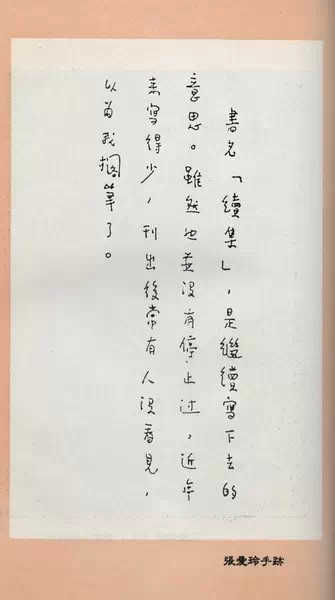 書名「續集」，是繼續寫下去的
意思。雖然也並沒有停止過，近年
來寫得少，刊出後常有人沒看見，
以為我擱筆了。
張愛玲手跡